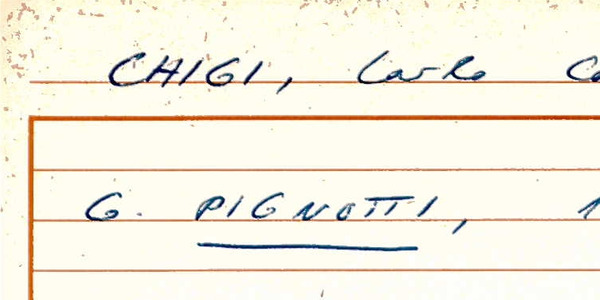 CHIGI, Carlo
G. PIGNOTTI,